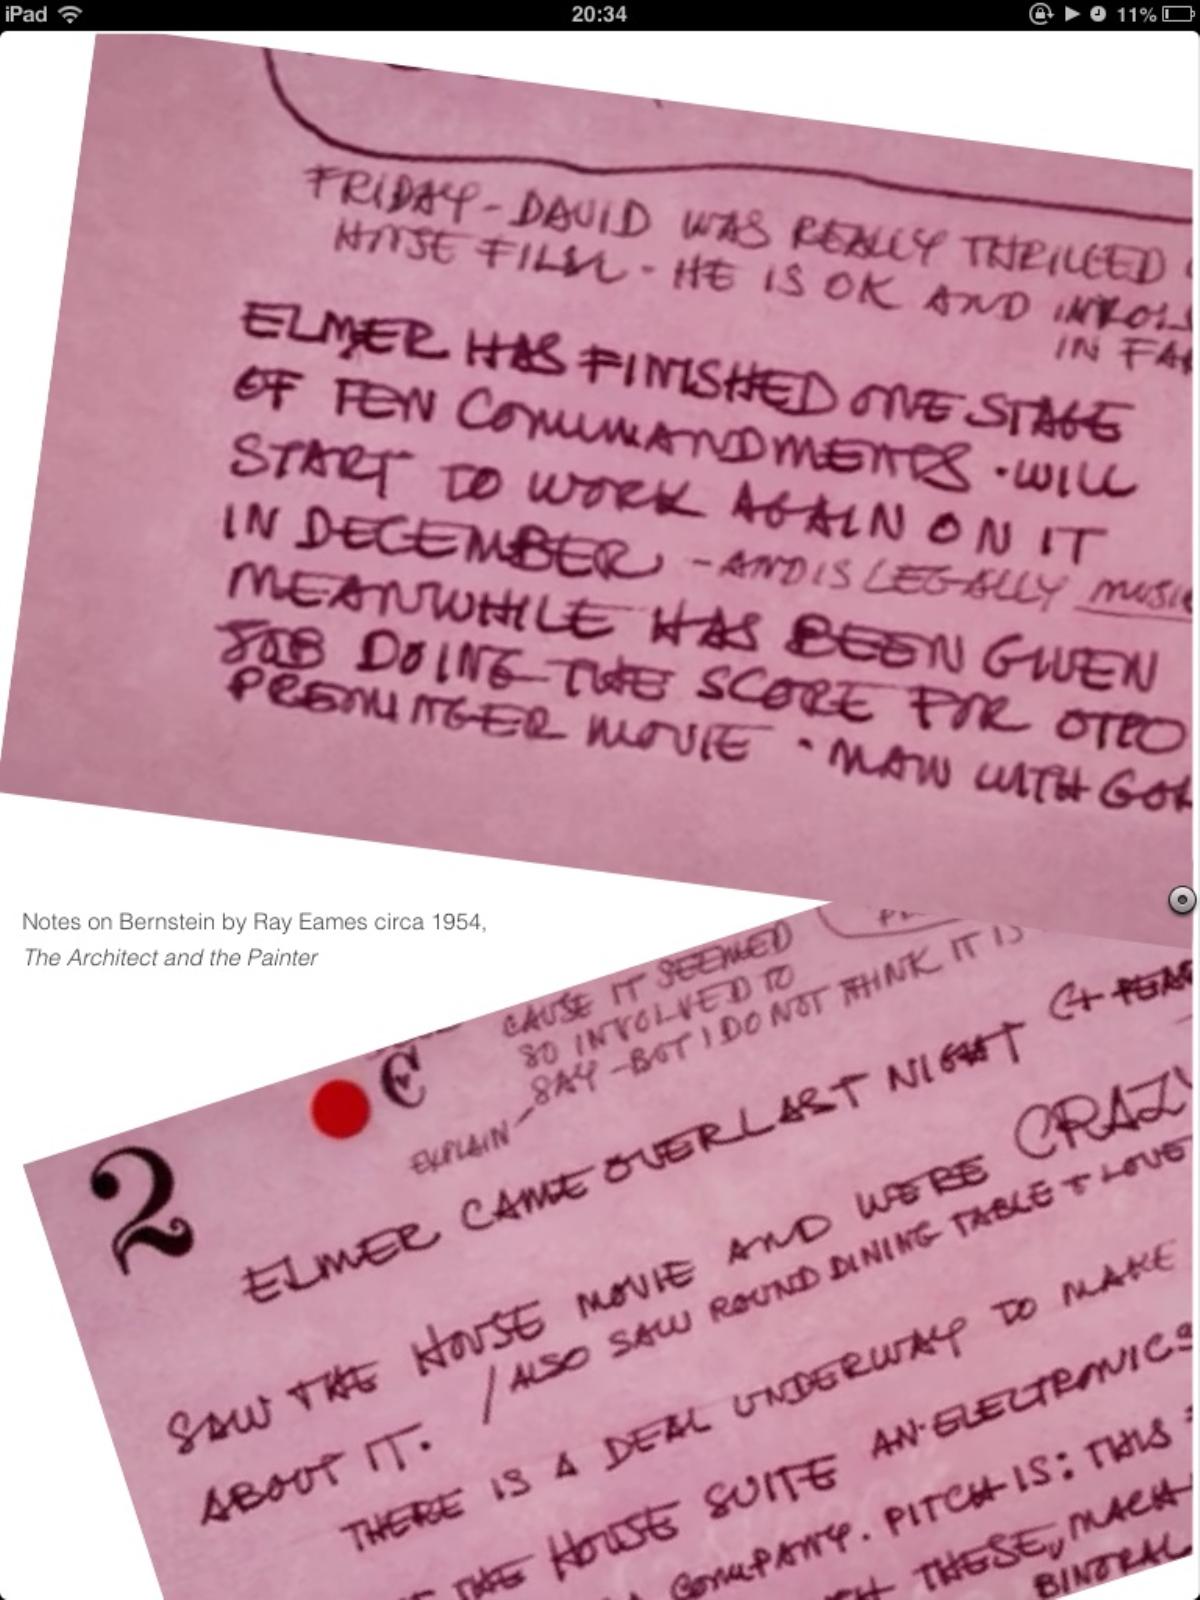 iPad 20:34 11%
FRIDAY - DAVID WAS REALLY THRILLED
HOUSE FILM - HE IS OK AND
IN
ELMER HAS FINISHED ONE STAGE
OF TEN COMMANDMENTS · WILL
START TO WORK AGAIN ON IT
IN DECEMBER - AND IS LEGALLY MUSIC
MEANWHILE HAS BEEN GIVEN
JOB DOING THE SCORE FOR OTTO
PREMINGER MOVIE · MAN WITH GOL
Notes on Bernstein by Ray Eames circa 1954,
The Architect and the Painter
CAUSE IT SEEMED
SO INVOLVED TO
SAY - BUT I DO NOT THINK IT IS
EXPLAIN
2
ELMER CAME OVER LAST NIGHT (+
SAW THE HOUSE MOVIE AND WERE CRAZY
ABOUT IT. / ALSO SAW ROUND DINING TABLE + LOVE
THERE IS A DEAL UNDERWAY TO MAKE
THE HOUSE SUITE AN ELECTRONICS
COMPANY. PITCH IS: THIS
THESE, MACH
BINORAL